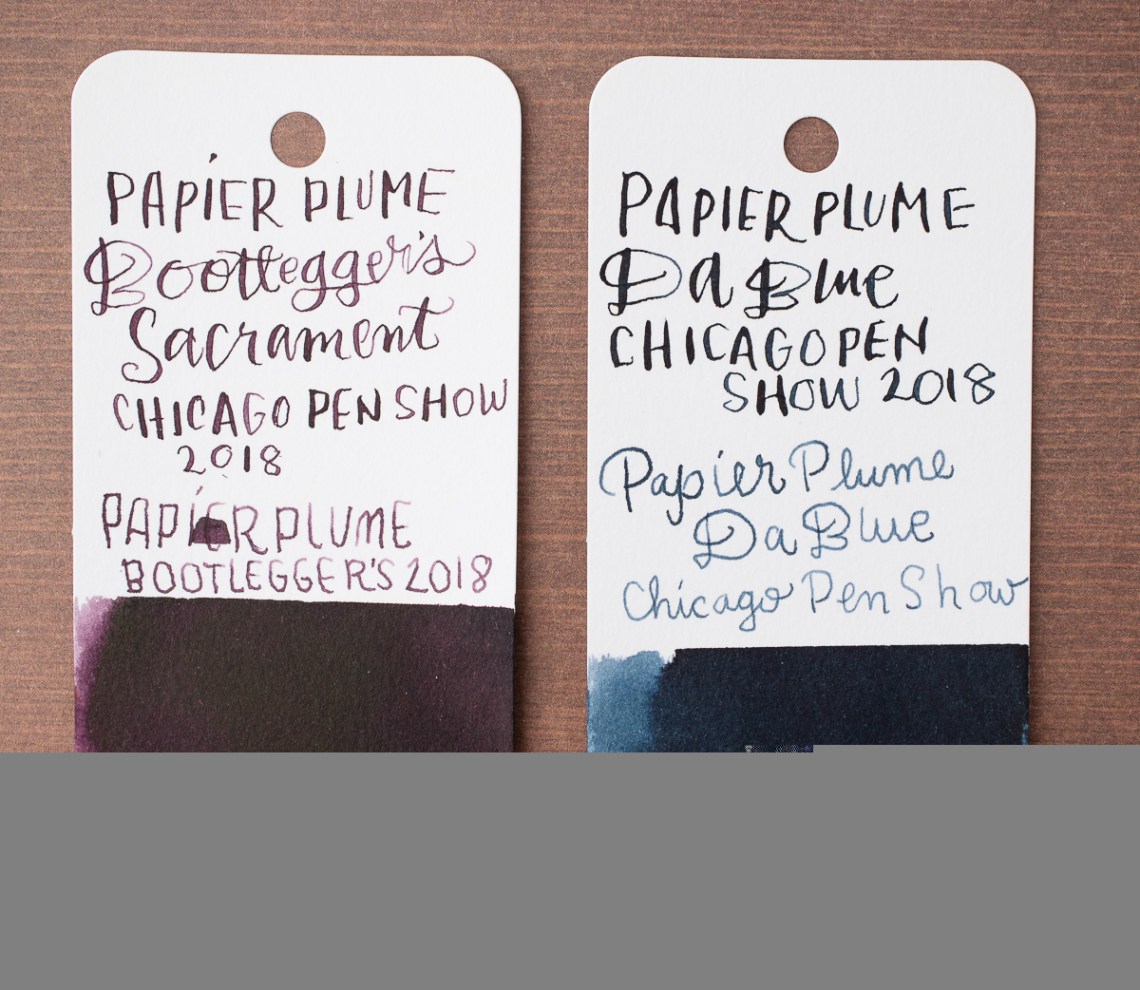 PAPIER PLUME
Bootlegger's
Sacrament
CHICAGO PEN SHOW
2018
PAPIER PLUME
BOOTLEGGER'S 2018
PAPIER PLUME
Da Blue
CHICAGO PEN
SHOW 2018
Papier Plume
Da Blue
Chicago Pen Show